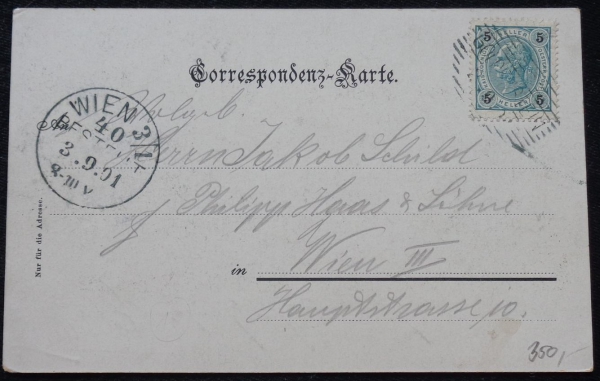 5 HELLER 5
5 HELLER 5
Correspondenz-Karte.
WIEN 3/1
40
BESTELLT
3.9.01
8-10V
Wolgeb.
Herrn Jakob Schild
Philipp Haas & Söhne
in Wien III
Hauptstrasse 10.
Nur für die Adresse.
350,-